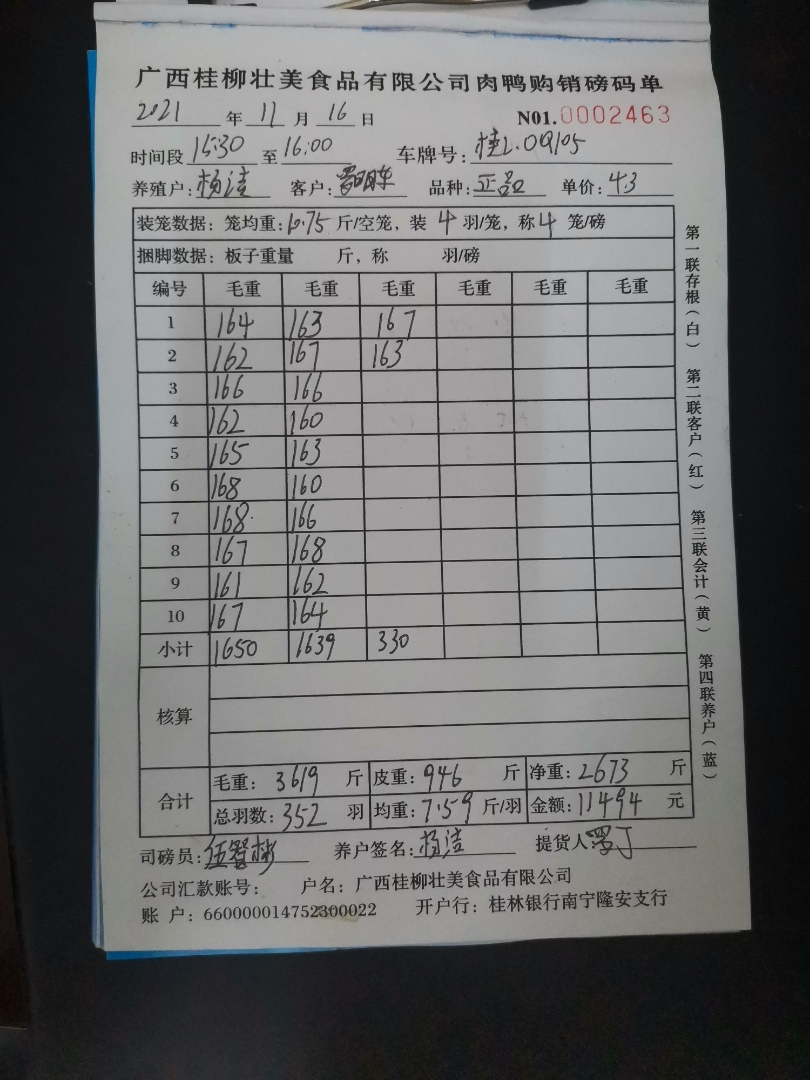 广西桂柳壮美食品有限公司肉鸭购销磅码单
2021 年 11 月 16 日 N01.0002463
时间段 15:30 至 16:00 车牌号: 桂L·09105
养殖户: 杨洁 客户: 品种: 正品 单价: 4.3
装笼数据: 笼均重: 10.75 斤/空笼, 装 4 羽/笼, 称 4 笼/磅
捆脚数据: 板子重量 斤, 称 羽/磅
编号 毛重 毛重 毛重 毛重 毛重 毛重
1 164 163 167
2 162 167 163
3 166 166
4 162 160
5 165 163
6 168 160
7 168 166
8 167 168
9 161 162
10 167 164
小计 1650 1639 330
核算
合计 毛重: 3619 斤 皮重: 946 斤 净重: 2673 斤
总羽数: 352 羽 均重: 7.59 斤/羽 金额: 11494 元
司磅员: 伍智彬 养户签名: 杨洁 提货人:
公司汇款账号: 户名: 广西桂柳壮美食品有限公司
账 户: 660000014752300022 开户行: 桂林银行南宁隆安支行
第一联存根(白) 第二联客户(红) 第三联会计(黄) 第四联养户(蓝)